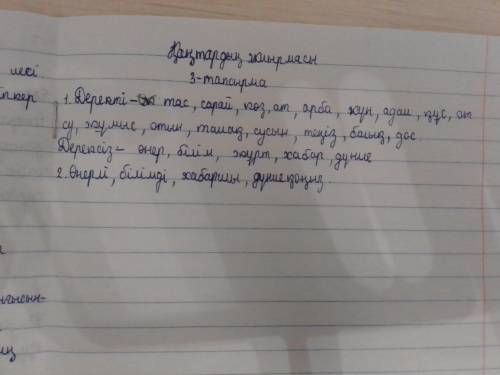 Қаңтардың жиырмасы
3-тапсырма
1. Деректі - тас, сарай, көз, ат, арба, жүн, адам, құс, от
су, жұмыс, отын, тамақ, сусын, теңіз, балық, дос
Дерексіз - өнер, білім, жұрт, хабар, дүние
2. Өнерлі, білімді, хабаршы, дүниеқоңыз.